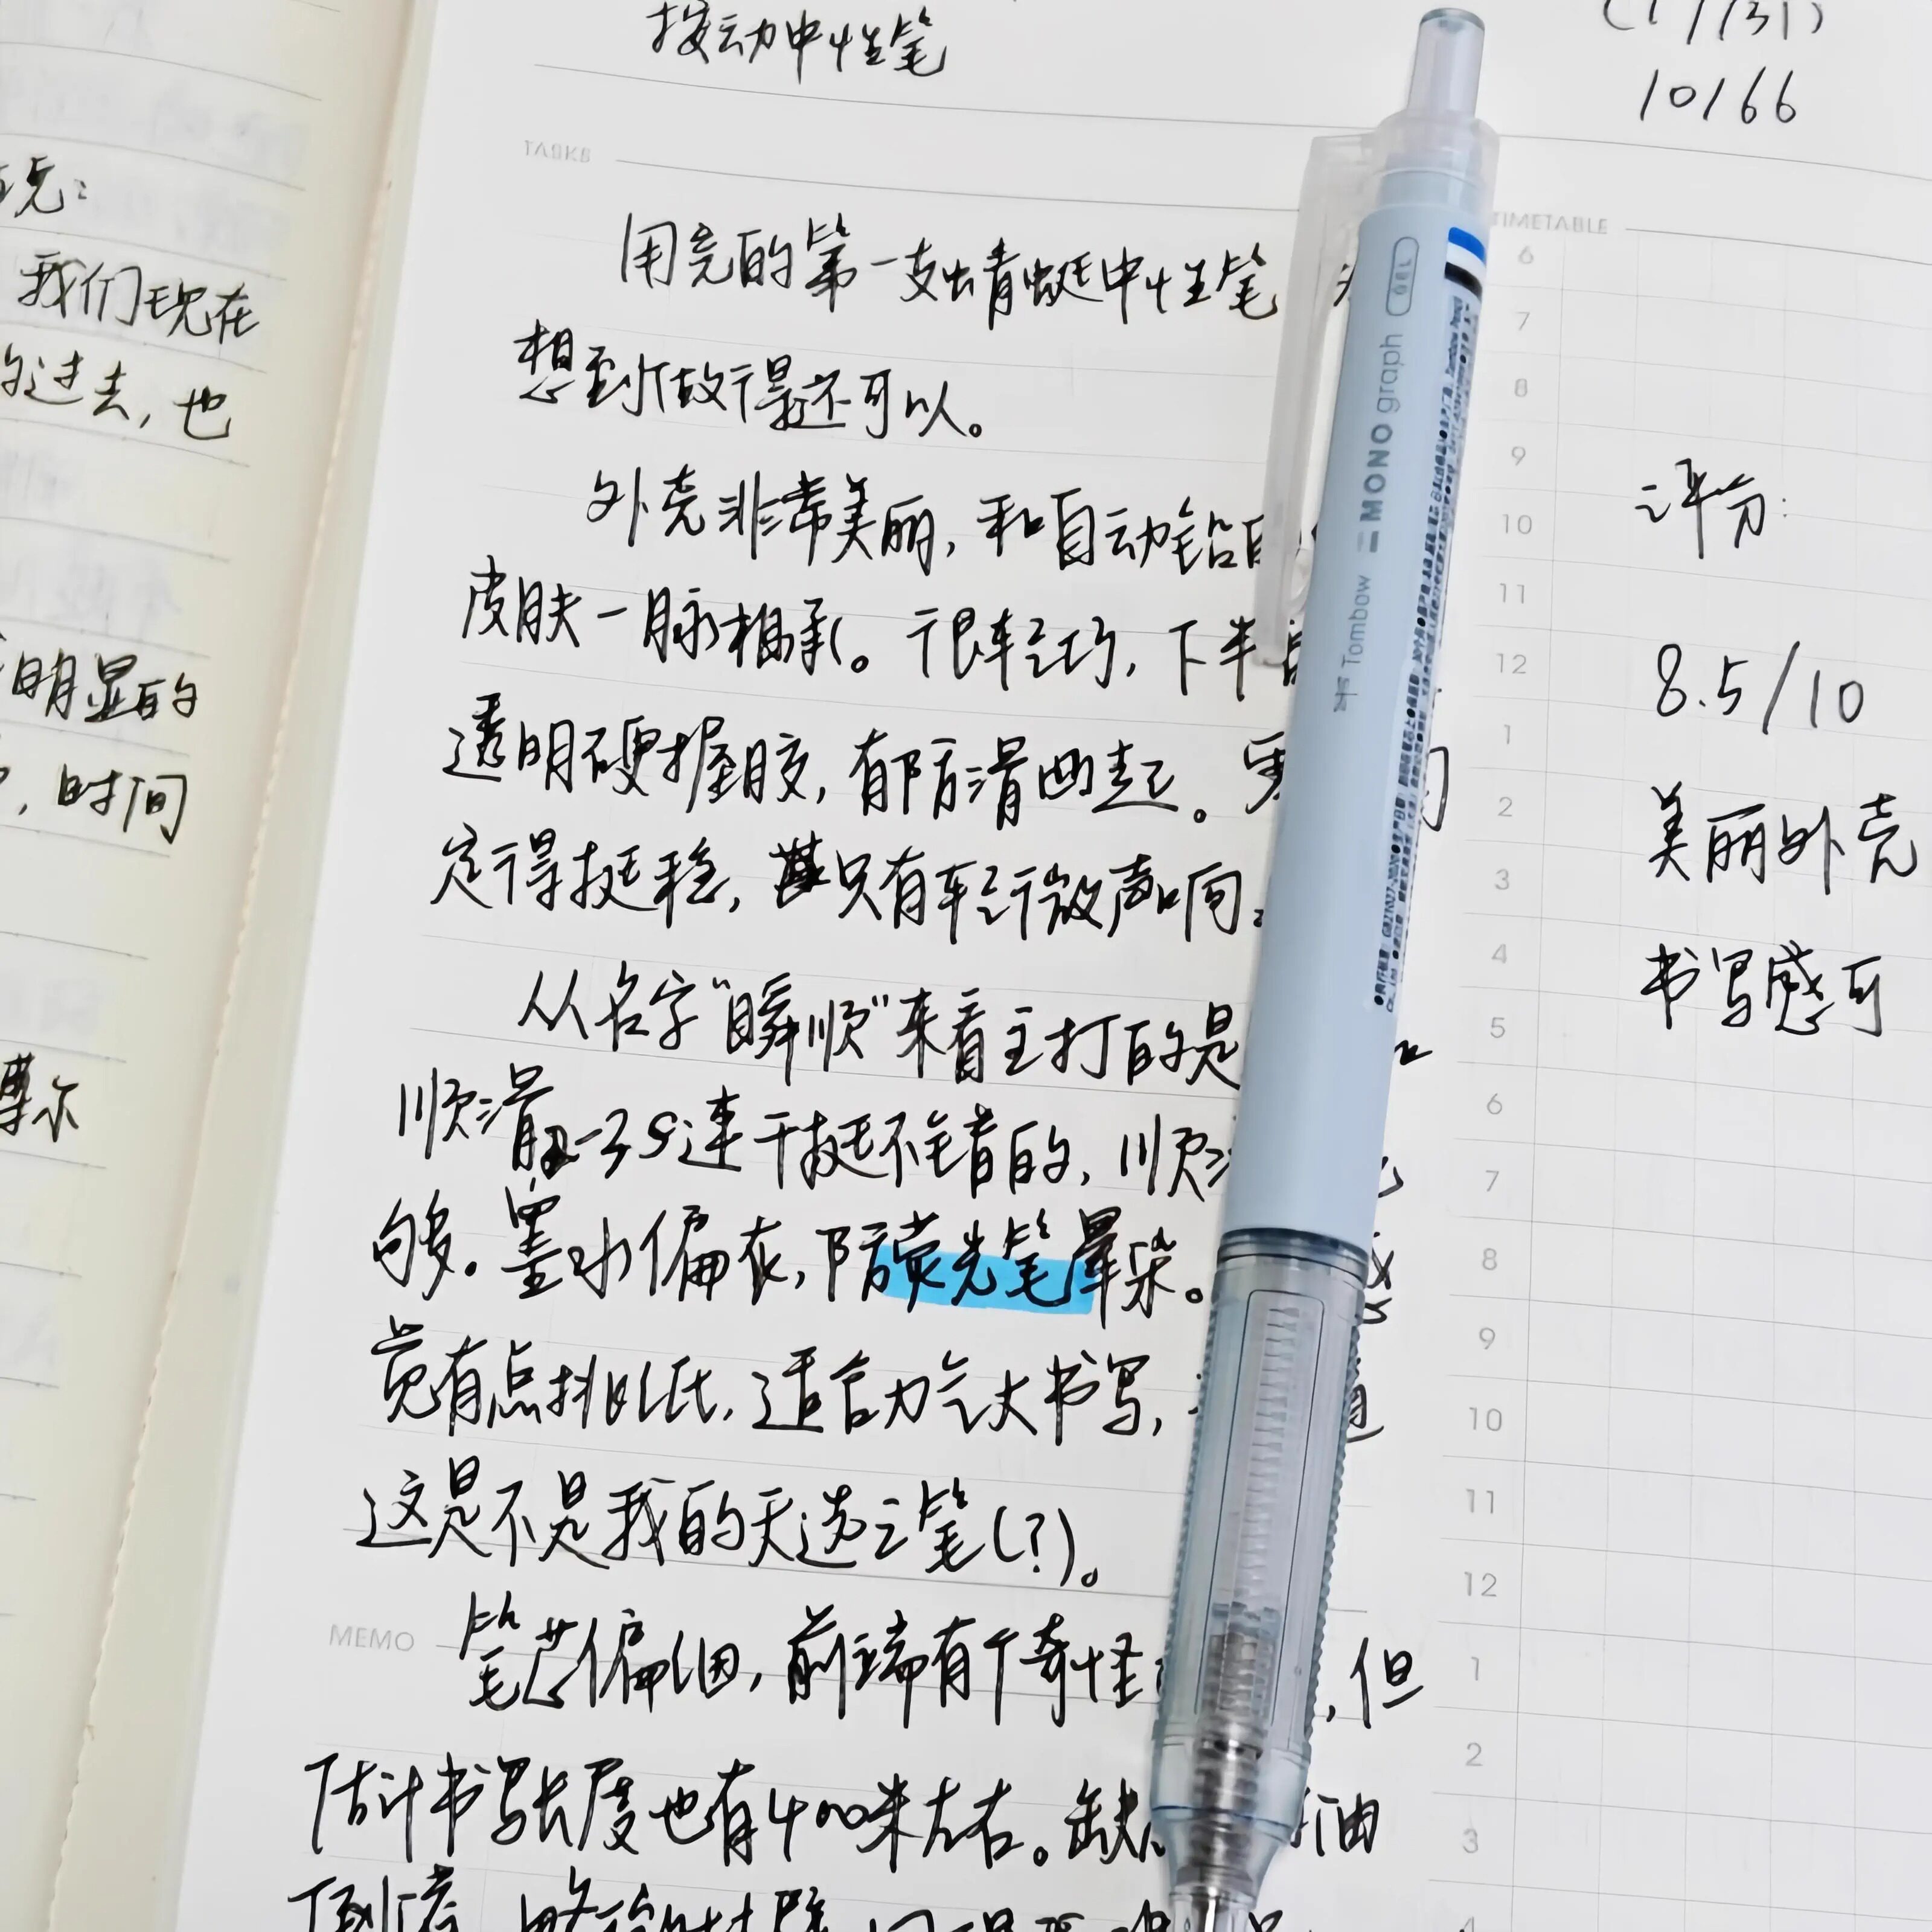 按动中性笔
(1/131)
10166
TASKS
TIMETABLE
用完的第一支蜻蜓中性笔
想到做得还可以。
外壳非常美丽,和自动铅
皮肤一脉相承。很轻巧,下半
透明硬握胶,有防滑凸起。
定得挺稳,只有轻微声响。
从名字“瞬顺”来看主打的是
顺滑2-3S速干挺不错的,顺
够。墨水偏灰,防荧光笔晕染。
觉有点挑纸,适合力气大书写,
这是不是我的天选之笔(?)。
MEMO
笔芯偏细,前端有个奇怪 ,但
估计书写长度也有400米左右。缺 油
倒
GEL
MONO graph
Tombow
6
7
8
9
10
11
12
1
2
3
4
5
6
7
8
9
10
11
12
1
2
3
4
评分:
8.5/10
美丽外壳
书写感可
我们现在
过去,也
明显的
,时间
摩尔